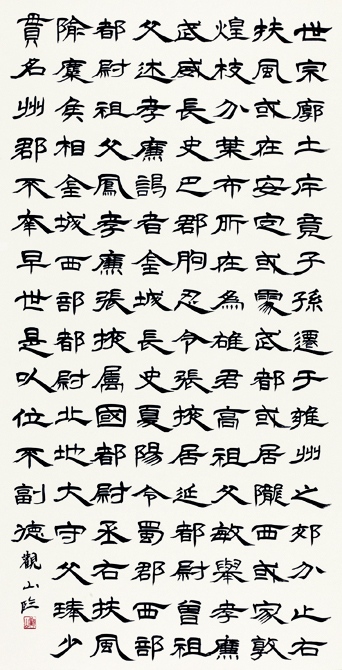 世宗廓土斥竟子孫遷于雍州之郊分止右
扶風或在安定或處武都或居隴西或家敦
煌枝分葉布所在為雄君高祖父敏舉孝廉
武威長史巴郡朐忍令張掖居延都尉曾祖
父述孝廉謁者金城長史夏陽令蜀郡西部
都尉祖父鳳孝廉張掖屬國都尉丞右扶風
隃麋侯相金城西部都尉北地大守父琫少
貫名州郡不幸早世是以位不副德
觀山臨